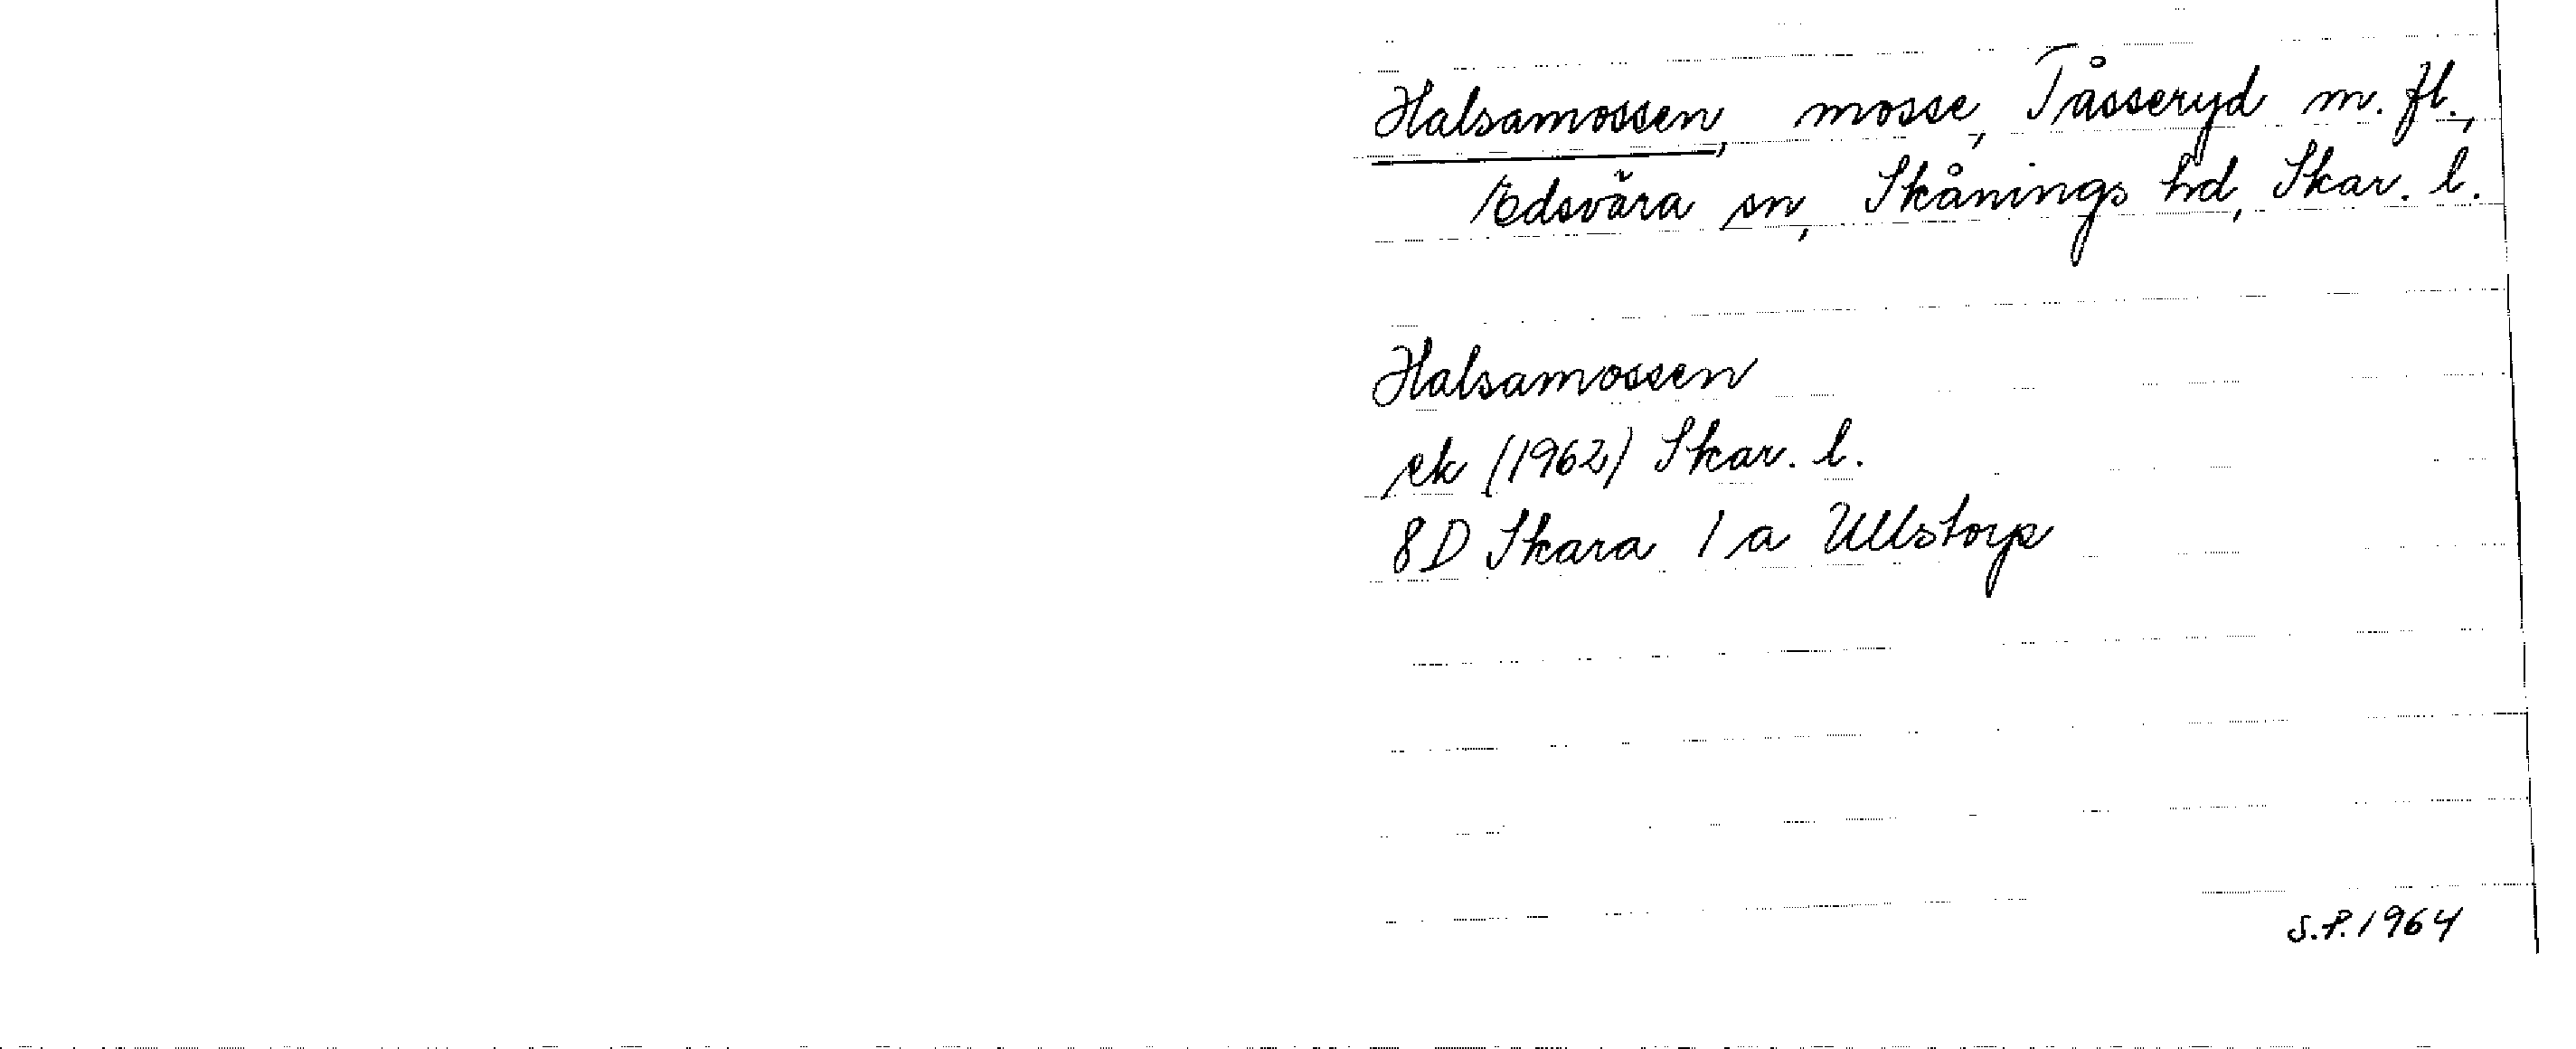 Halsamossen, mosse, Tåsseryd m. fl.,
Edsvära sn, Skånings hd, Skar. l.
Halsamossen
ek (1962) Skar. l.
8D Skara 1 a Ullstorp
S.P. 1964